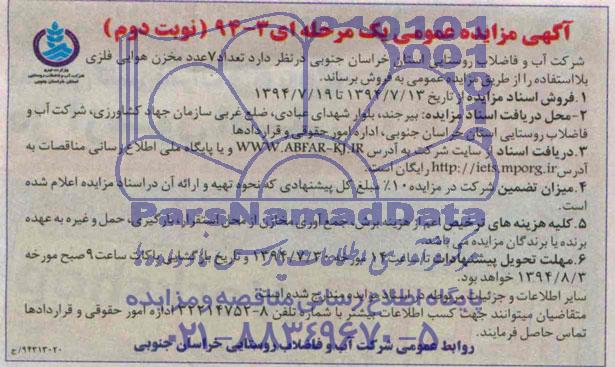 آگهی مزایده عمومی یک مرحله ای ۳-۹۴ (نوبت دوم)
شرکت آب و فاضلاب روستایی استان خراسان جنوبی درنظر دارد تعداد ۷عدد مخزن هوایی فلزی
بلااستفاده را از طریق مزایده عمومی به فروش برساند.
۱.فروش اسناد مزایده از تاریخ ۱۳۹۴/۷/۱۳ تا ۱۳۹۴/۷/۱۹
۲-محل دریافت اسناد مزایده: بیرجند، بلوار شهدای عبادی، ضلع غربی سازمان جهاد کشاورزی، شرکت آب و
فاضلاب روستایی استان خراسان جنوبی، اداره امور حقوقی و قراردادها
۳.دریافت اسناد از سایت شرکت به آدرس WWW.ABFAR-KJ.IR و یا پایگاه ملی اطلاع رسانی مناقصات به
آدرس http://iets.mporg.ir رایگان است.
۴.میزان تضمین شرکت در مزایده ۱۰٪ مبلغ کل پیشنهادی که نحوه تهیه و ارائه آن در اسناد مزایده اعلام شده
است.
۵.کلیه هزینه های ترخیص اعم از هزینه برش، جمع آوری مخازن از محل استقرار، بارگیری، حمل و غیره به عهده
برنده یا برندگان مزایده می باشد.
۶.مهلت تحویل پیشنهادات تا ساعت ۱۴ مورخه و تاریخ بازگشایی پاکات ساعت ۹ صبح مورخه
۱۳۹۴/۸/۳ خواهد بود.
سایر اطلاعات و جزئیات مربوطه در اسناد مزایده مندرج شده است
متقاضیان میتوانند جهت کسب اطلاعات بیشتر با شماره تلفن ۸-۳۲۲۱۴۷۵۲ اداره امور حقوقی و قراردادها
تماس حاصل فرمایند.
روابط عمومی شرکت آب و فاضلاب روستایی خراسان جنوبی
۹۴۳۱۳۰۲۰/ج
ParsNamadData
پایگاه اطلاع رسانی مناقصه و مزایده
۰۲۱-۸۸۳۴۹۶۷۰-۵